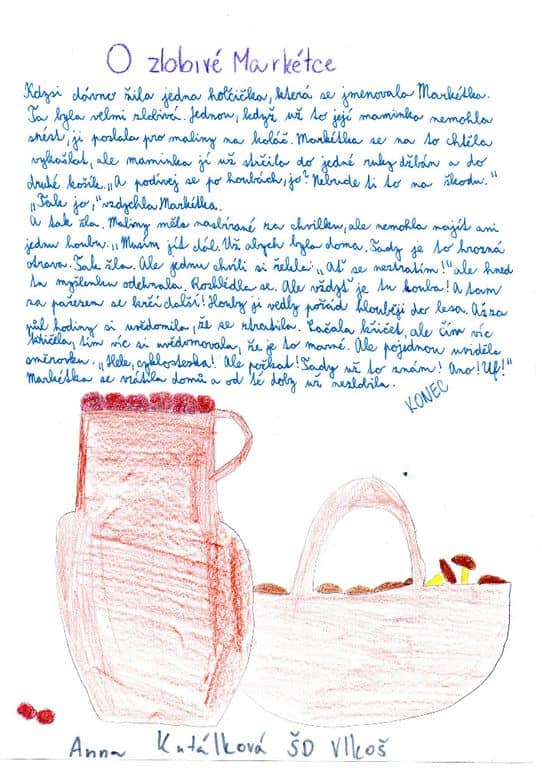 O zlobivé Markétce
Kdysi dávno žila jedna holčička, která se jmenovala Markétka.
Ta byla velmi zlobivá. Jednou, když už to její maminka nemohla
snést, ji poslala pro maliny na koláč. Markétka se na to chtěla
vykašlat, ale maminka jí už strčila do jedné ruky džbán a do
druhé košík. „A podívej se po houbách, jo? Nebude ti to na škodu."
„Tak jo," vzdychla Markétka.
A tak šla. Maliny měla nasbírané za chvilku, ale nemohla najít ani
jednu houbu. „Musím jít dál. Už abych byla doma. Tady je to hrozná
otrava. Tak šla. Ale jednu chvíli si řekla: „Ať se neztratím!" ale hned
tu myšlenku odehnala. Rozhlédla se. Ale vždyť je tu houba! A tam
za pařezem se krčí další! Houby ji vedly pořád hlouběji do lesa. Až za
půl hodiny si uvědomila, že se ztratila. Začala křičet, ale čím víc
křičela, tím víc si uvědomovala, že je to marné. Ale pojednou uviděla
směrovku. „Hele, cyklostezka! Ale počkat! Tady už to znám! Ano! Uf!"
Markétka se vrátila domů a od té doby už nezlobila.
KONEC
Anna Kutálková ŠD Vlkoš